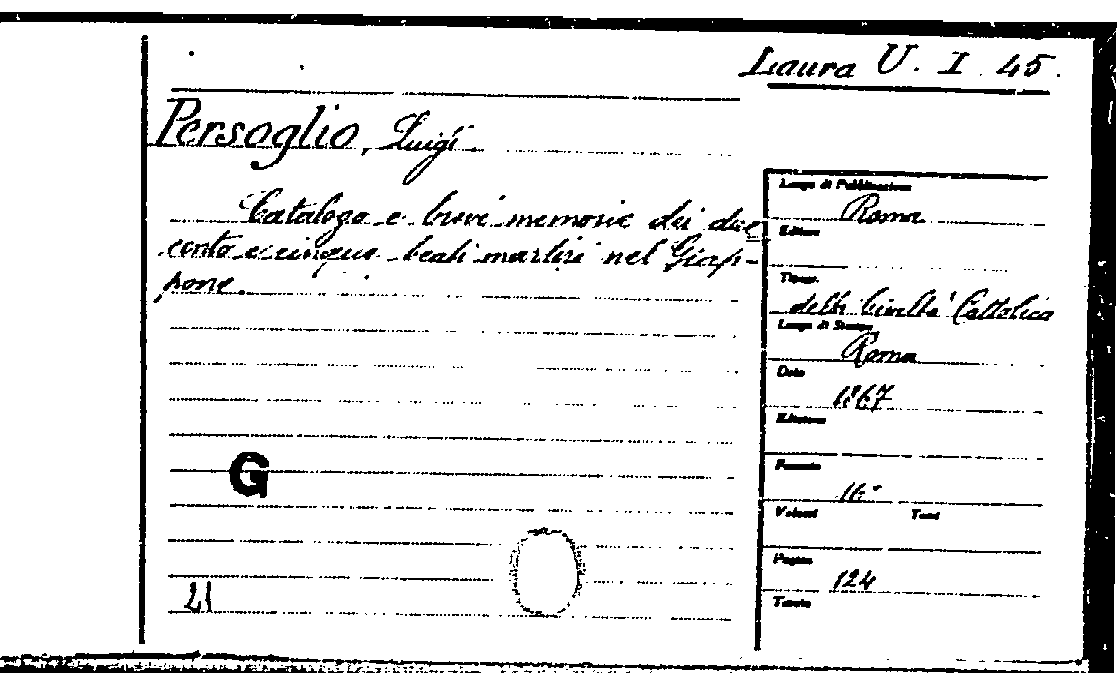 Laura U. I. 45.
Persoglio, Luigi.
Catalogo e brevi memorie dei due
cento e cinque beati martiri nel Giap-
pone.
Luogo di Pubblicazione
Roma
Editore
Tipogr.
della Civiltà Cattolica
Luogo di Stampa
Roma
Data
1867
Edizione
Formato
16°
Volumi Tomi
Pagine
124
Tavole
G
21